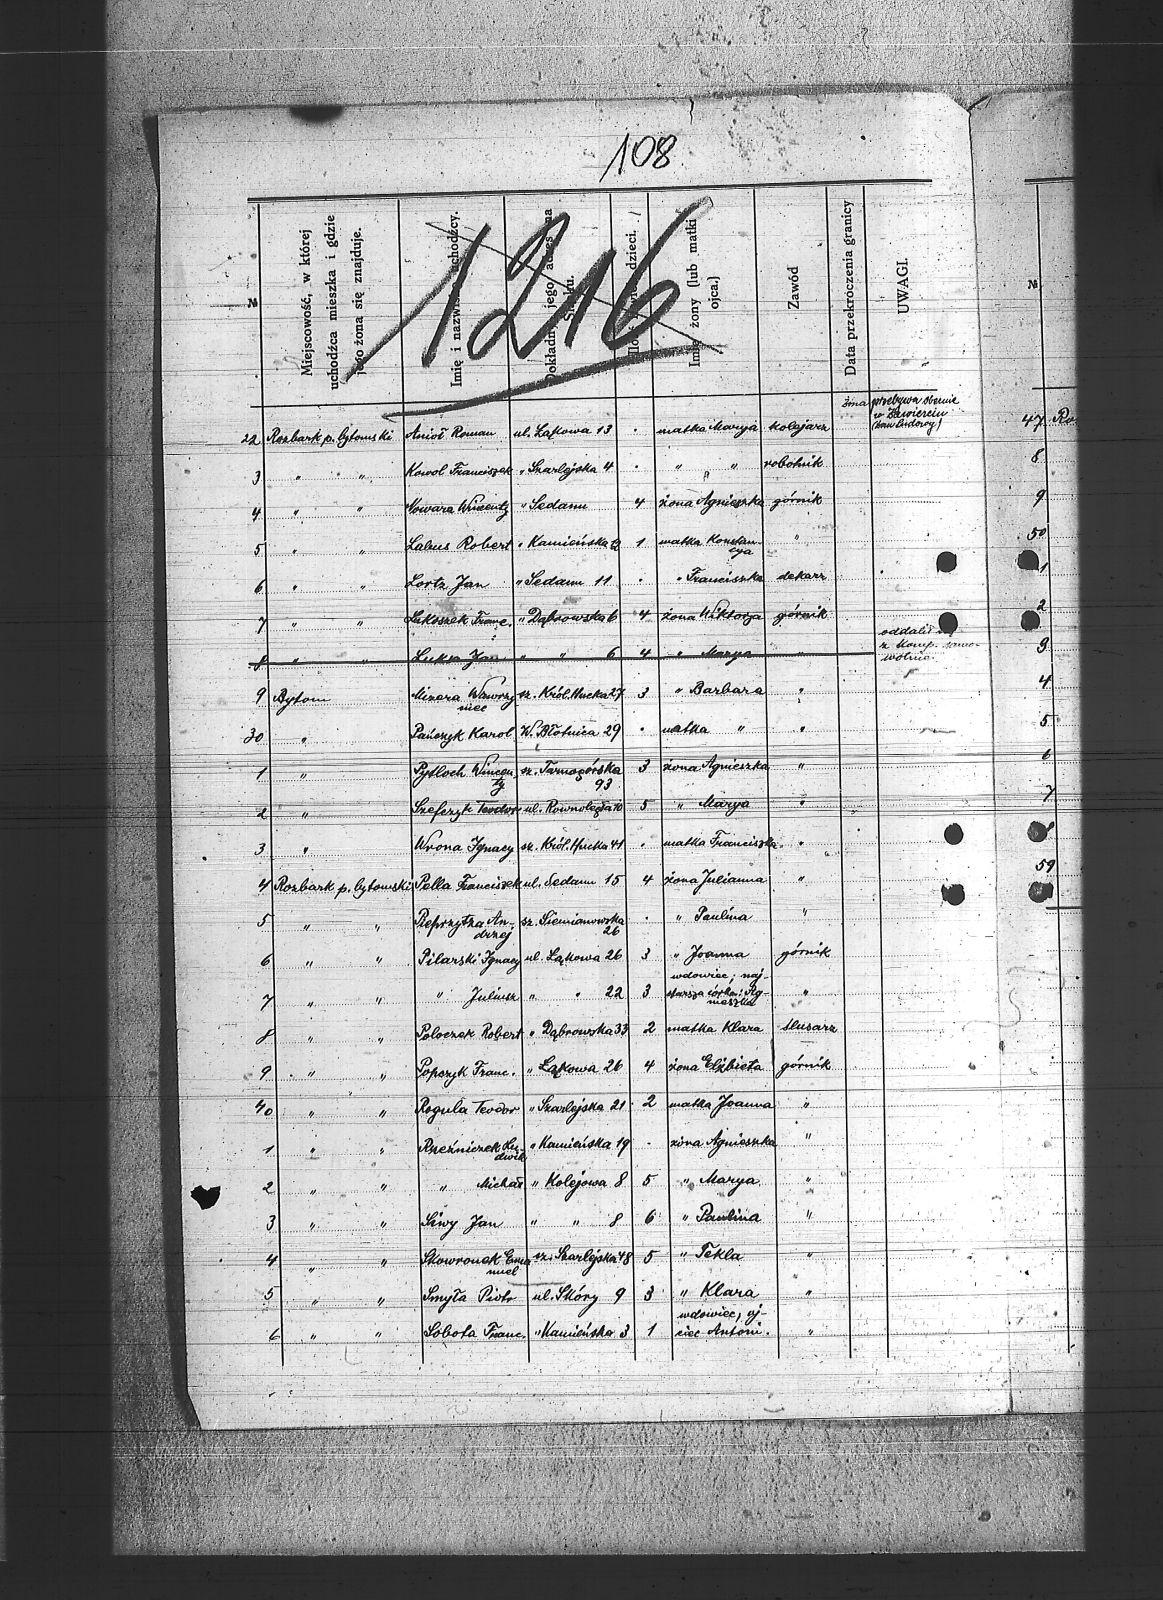 108
1216
№ Miejscowość, w której uchodźca mieszka i gdzie jego żona się znajduje. Imię i nazwisko uchodźcy. dzieci. Imię żony (lub matki ojca.) Zawód Data przekroczenia granicy UWAGI. №
żona przebywa obecnie
w Zawierciu
22 Rozbark p. bytomski Anioł Roman ul. Łąkowa 13 . matka Marya kolejarz 47 Ro
3 " " Kowol Franciszek " Szarlejska 4 . " " robotnik 8
4 " " Nowara Wincenty " Sedanu 4 żona Agnieszka górnik 9
5 " " Labus Robert " Kamieńska 12 1 matka Konstan- " 50
cya
6 " " Lortz Jan " Sedanu 11 . " Franciszka dekarz 1
7 " " Lukoszek Franc. " Dąbrowska 6 4 żona Wiktorja górnik 2
8 " " Luksa Jan " " 6 4 " Marya " oddalił się z komp. samo- wolnie 3
9 Bytom Mizera Wawrzy sz. Król. Hucka 27 3 " Barbara " 4
niec
30 " Pańczyk Karol W. Błotnica 29 . matka " " 5
1 " Pytloch Wincen sz. Tarnogórska 3 żona Agnieszka " 6
ty 93
2 " Szefczyk Teodor ul. Rownoległa 10 5 " Marya " 7
3 " Wrona Ignacy sz. Król. Hucka 41 . matka Franciszka "
4 Rozbark p. bytomski Pella Franciszek ul. Sedanu 15 4 żona Julianna " 59
5 " " Pieprzytza An- sz. Siemianowska . " Paulina "
drzej 26
6 " " Pilarski Ignacy ul. Łąkowa 26 3 " Joanna górnik
wdowiec; naj-
7 " " " Juliusz " " 22 3 starsza córka: Ag- "
nieszka
8 " " Poloczek Robert " Dąbrowska 33 2 matka Klara ślusarz
9 " " Popczyk Franc. " Łąkowa 26 4 żona Elżbieta górnik
40 " " Rogula Teodor " Szarlejska 21 2 matka Joanna "
1 " " Rzeźniczek Lu- " Kamieńska 19 . żona Agnieszka "
dwik
2 " " " Michał " Kolejowa 8 5 " Marya "
3 " " Siwy Jan " " 8 6 " Paulina "
4 " " Skowronek Ema sz. Szarlejska 48 5 " Tekla "
nuel
5 " " Smyła Piotr ul. Skóry 9 3 " Klara "
wdowiec, oj-
6 " " Sobota Franc. " Kamieńska 3 1 ciec Antoni. "